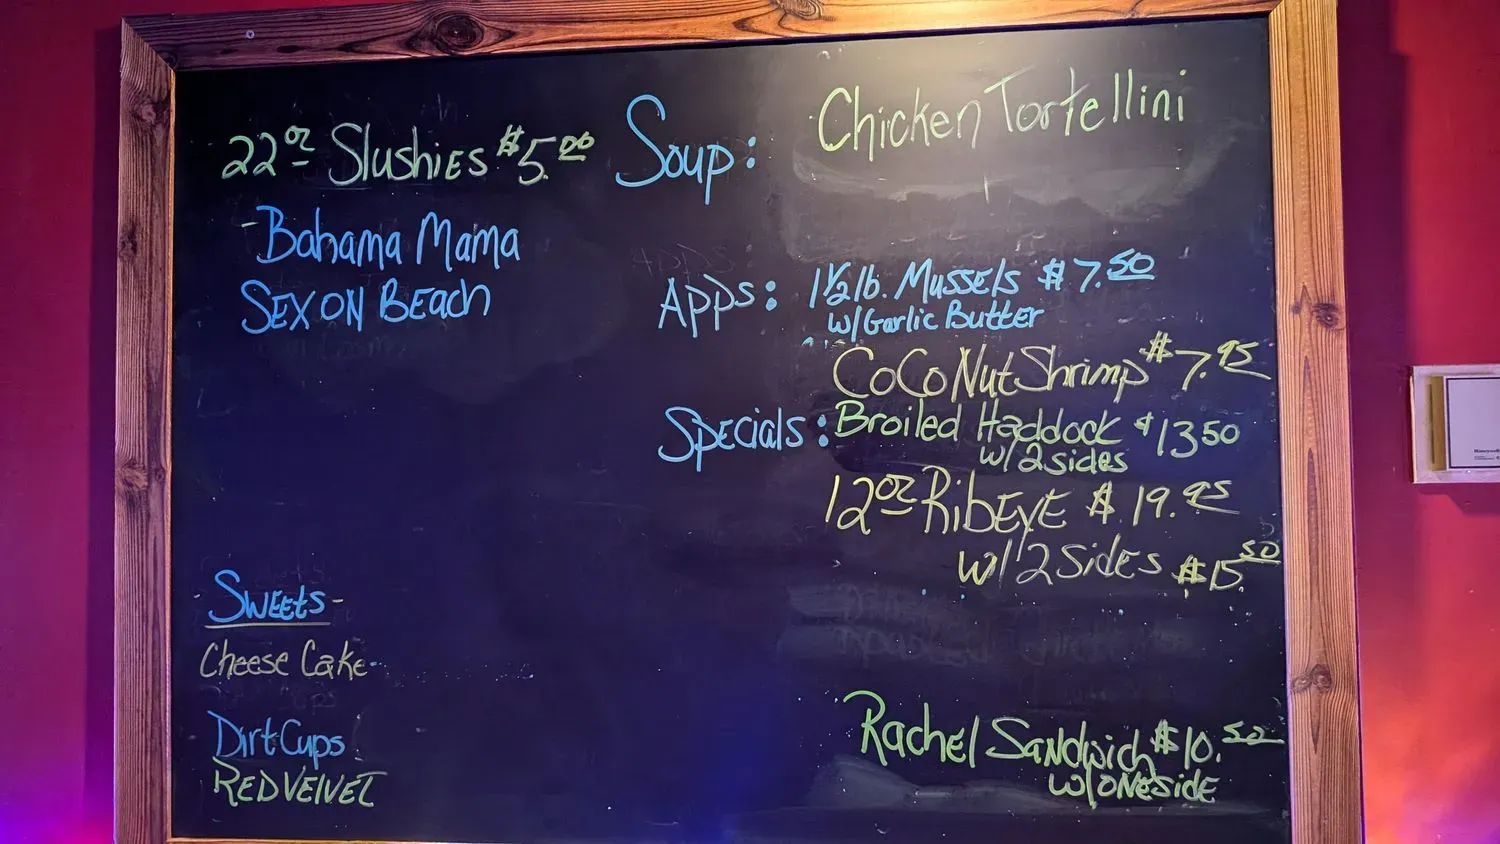 22oz Slushies $5.00
- Bahama Mama
SEX ON BEach
Soup: Chicken Tortellini
Apps: 1 1/2 lb. Mussels $7.50
w/ Garlic Butter
CoCoNut Shrimp $7.95
Specials: Broiled Haddock $13.50
w/ 2 sides
12oz RibEyE $19.95
w/ 2 SidEs $15.50
- SwEEts -
Cheese Cake -
Dirt Cups
RED VElVET
RachEl SaNdwich $10.50
w/ ONE SidE